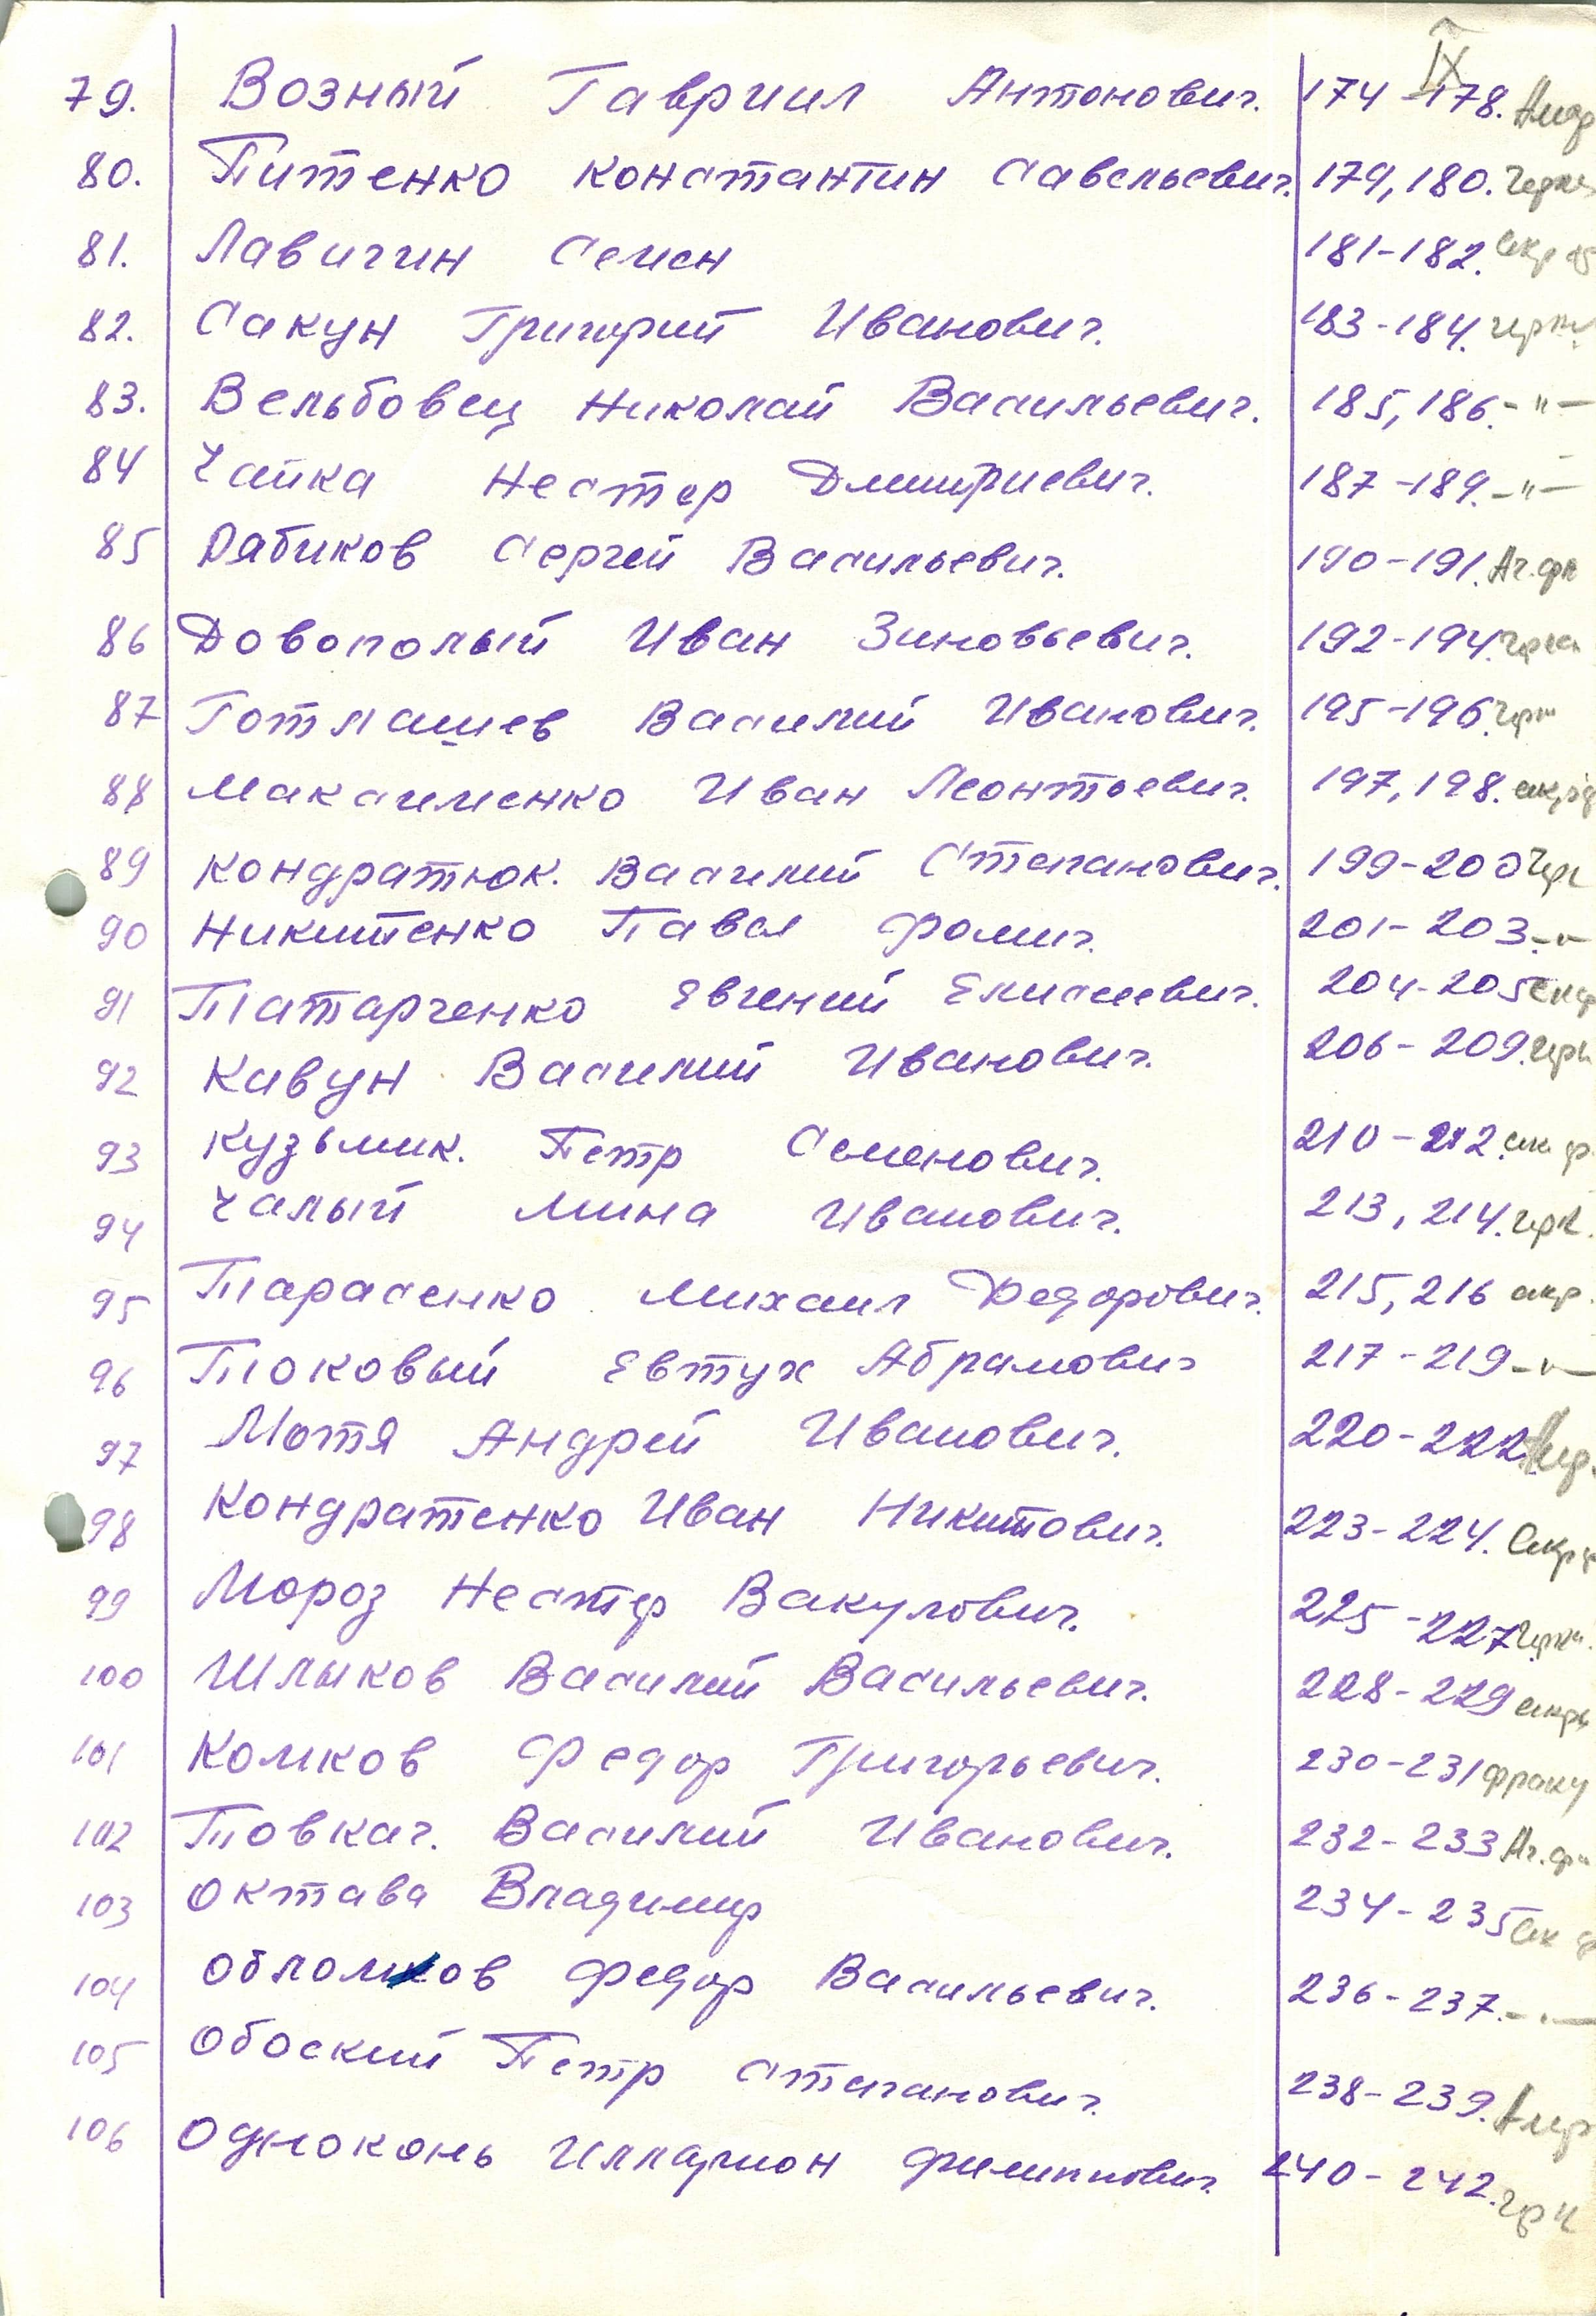 IX
79. Возный Гавриил Антонович. 174-178.
80. Питенко Константин Савельевич. 179, 180.
81. Лавигин Семен 181-182.
82. Сакун Григорий Иванович. 183-184.
83. Вельбовец Николай Васильевич. 185, 186. -"-
84 Чайка Нестер Дмитриевич. 187-189. -"-
85 Дябиков Сергей Васильевич. 190-191.
86 Довополый Иван Зиновьевич. 192-194.
87 Готлашев Василий Иванович. 195-196.
88 Максименко Иван Леонтьевич. 197, 198.
89 Кондратюк. Василий Степанович. 199-200
90 Никитенко Павел Фомич. 201-203. -"-
91 Татарченко Евгений Елисеевич. 204-205
92 Кавун Василий Иванович. 206-209.
93 Кузьмик. Петр Семенович. 210-212.
94 Чалый Мина Иванович. 213, 214.
95 Тарасенко Михаил Федорович. 215, 216
96 Токовый Евтух Абрамович 217-219 -"-
97 Мотя Андрей Иванович. 220-222.
98 Кондратенко Иван Никитович. 223-224.
99 Мороз Нестер Вакулович. 225-227
100 Шлыков Василий Васильевич. 228-229
101 Комков Федор Григорьевич. 230-231
102 Товкач. Василий Иванович. 232-233
103 Октава Владимир 234-235
104 Обломков Федор Васильевич. 236-237. -"-
105 Обоский Петр Степанович. 238-239.
106 Одноконь Илларион Филиппович. 240-242.